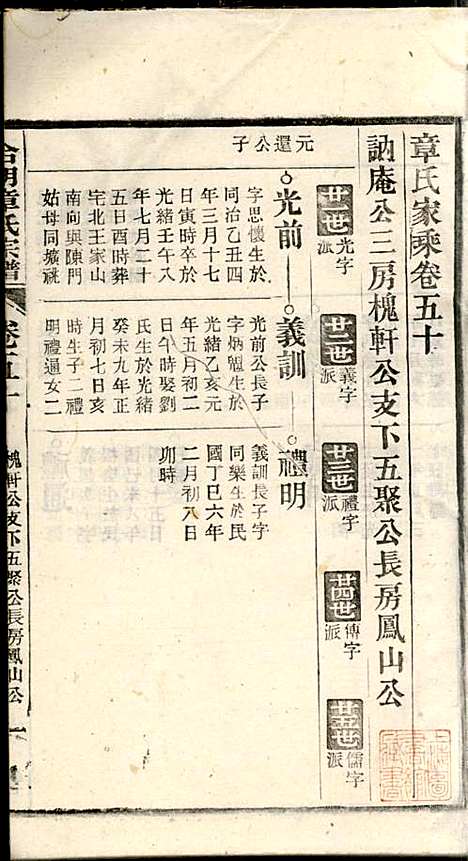 章氏家乘卷五十
訥庵公三房槐軒公支下五聚公長房鳳山公
廿一世 光字派
廿二世 義字派
廿三世 禮字派
廿四世 傳字派
廿五世 儒字派
元還公子
光前
義訓
禮明
字思懷生於
同治乙丑四
年三月十七
日寅時卒於
光緒壬午八
年七月二十
五日酉時葬
宅北王家山
南向與陳門
姑母同壙祔
光前公長子
字炳魁生於
光緒乙亥元
年五月初二
日午時娶劉
氏生於光緒
癸未九年正
月初七日亥
時生子二禮
明禮逼女二
義訓長子字
同樂生於民
國丁巳六年
二月初八日
卯時
章氏宗譜
卷五十
槐軒公支下五聚公長房鳳山公
一